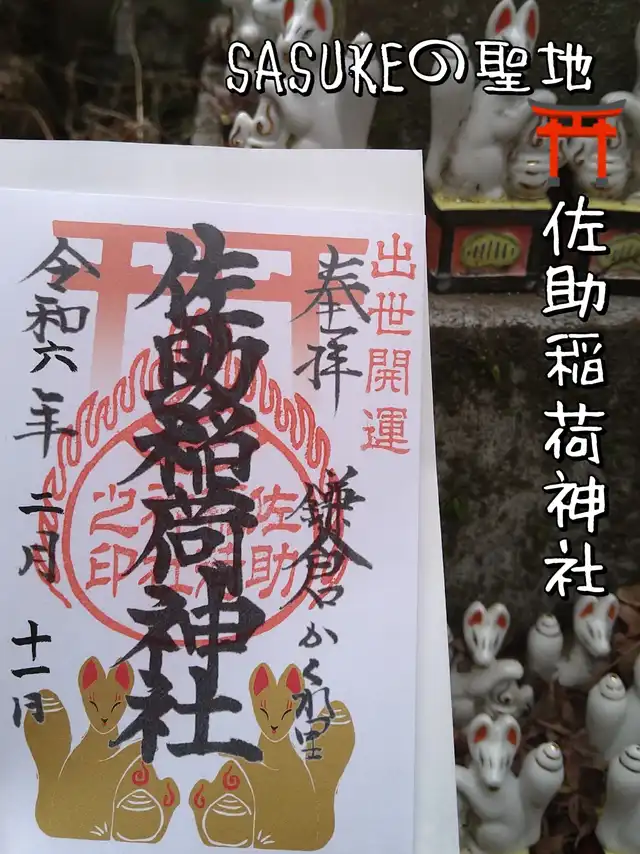 SASUKEの聖地
⛩
佐助稲荷神社
出世開運
奉拝
鎌倉かくれ里
佐助稲荷神社
佐助
之印
令和六年二月十一日